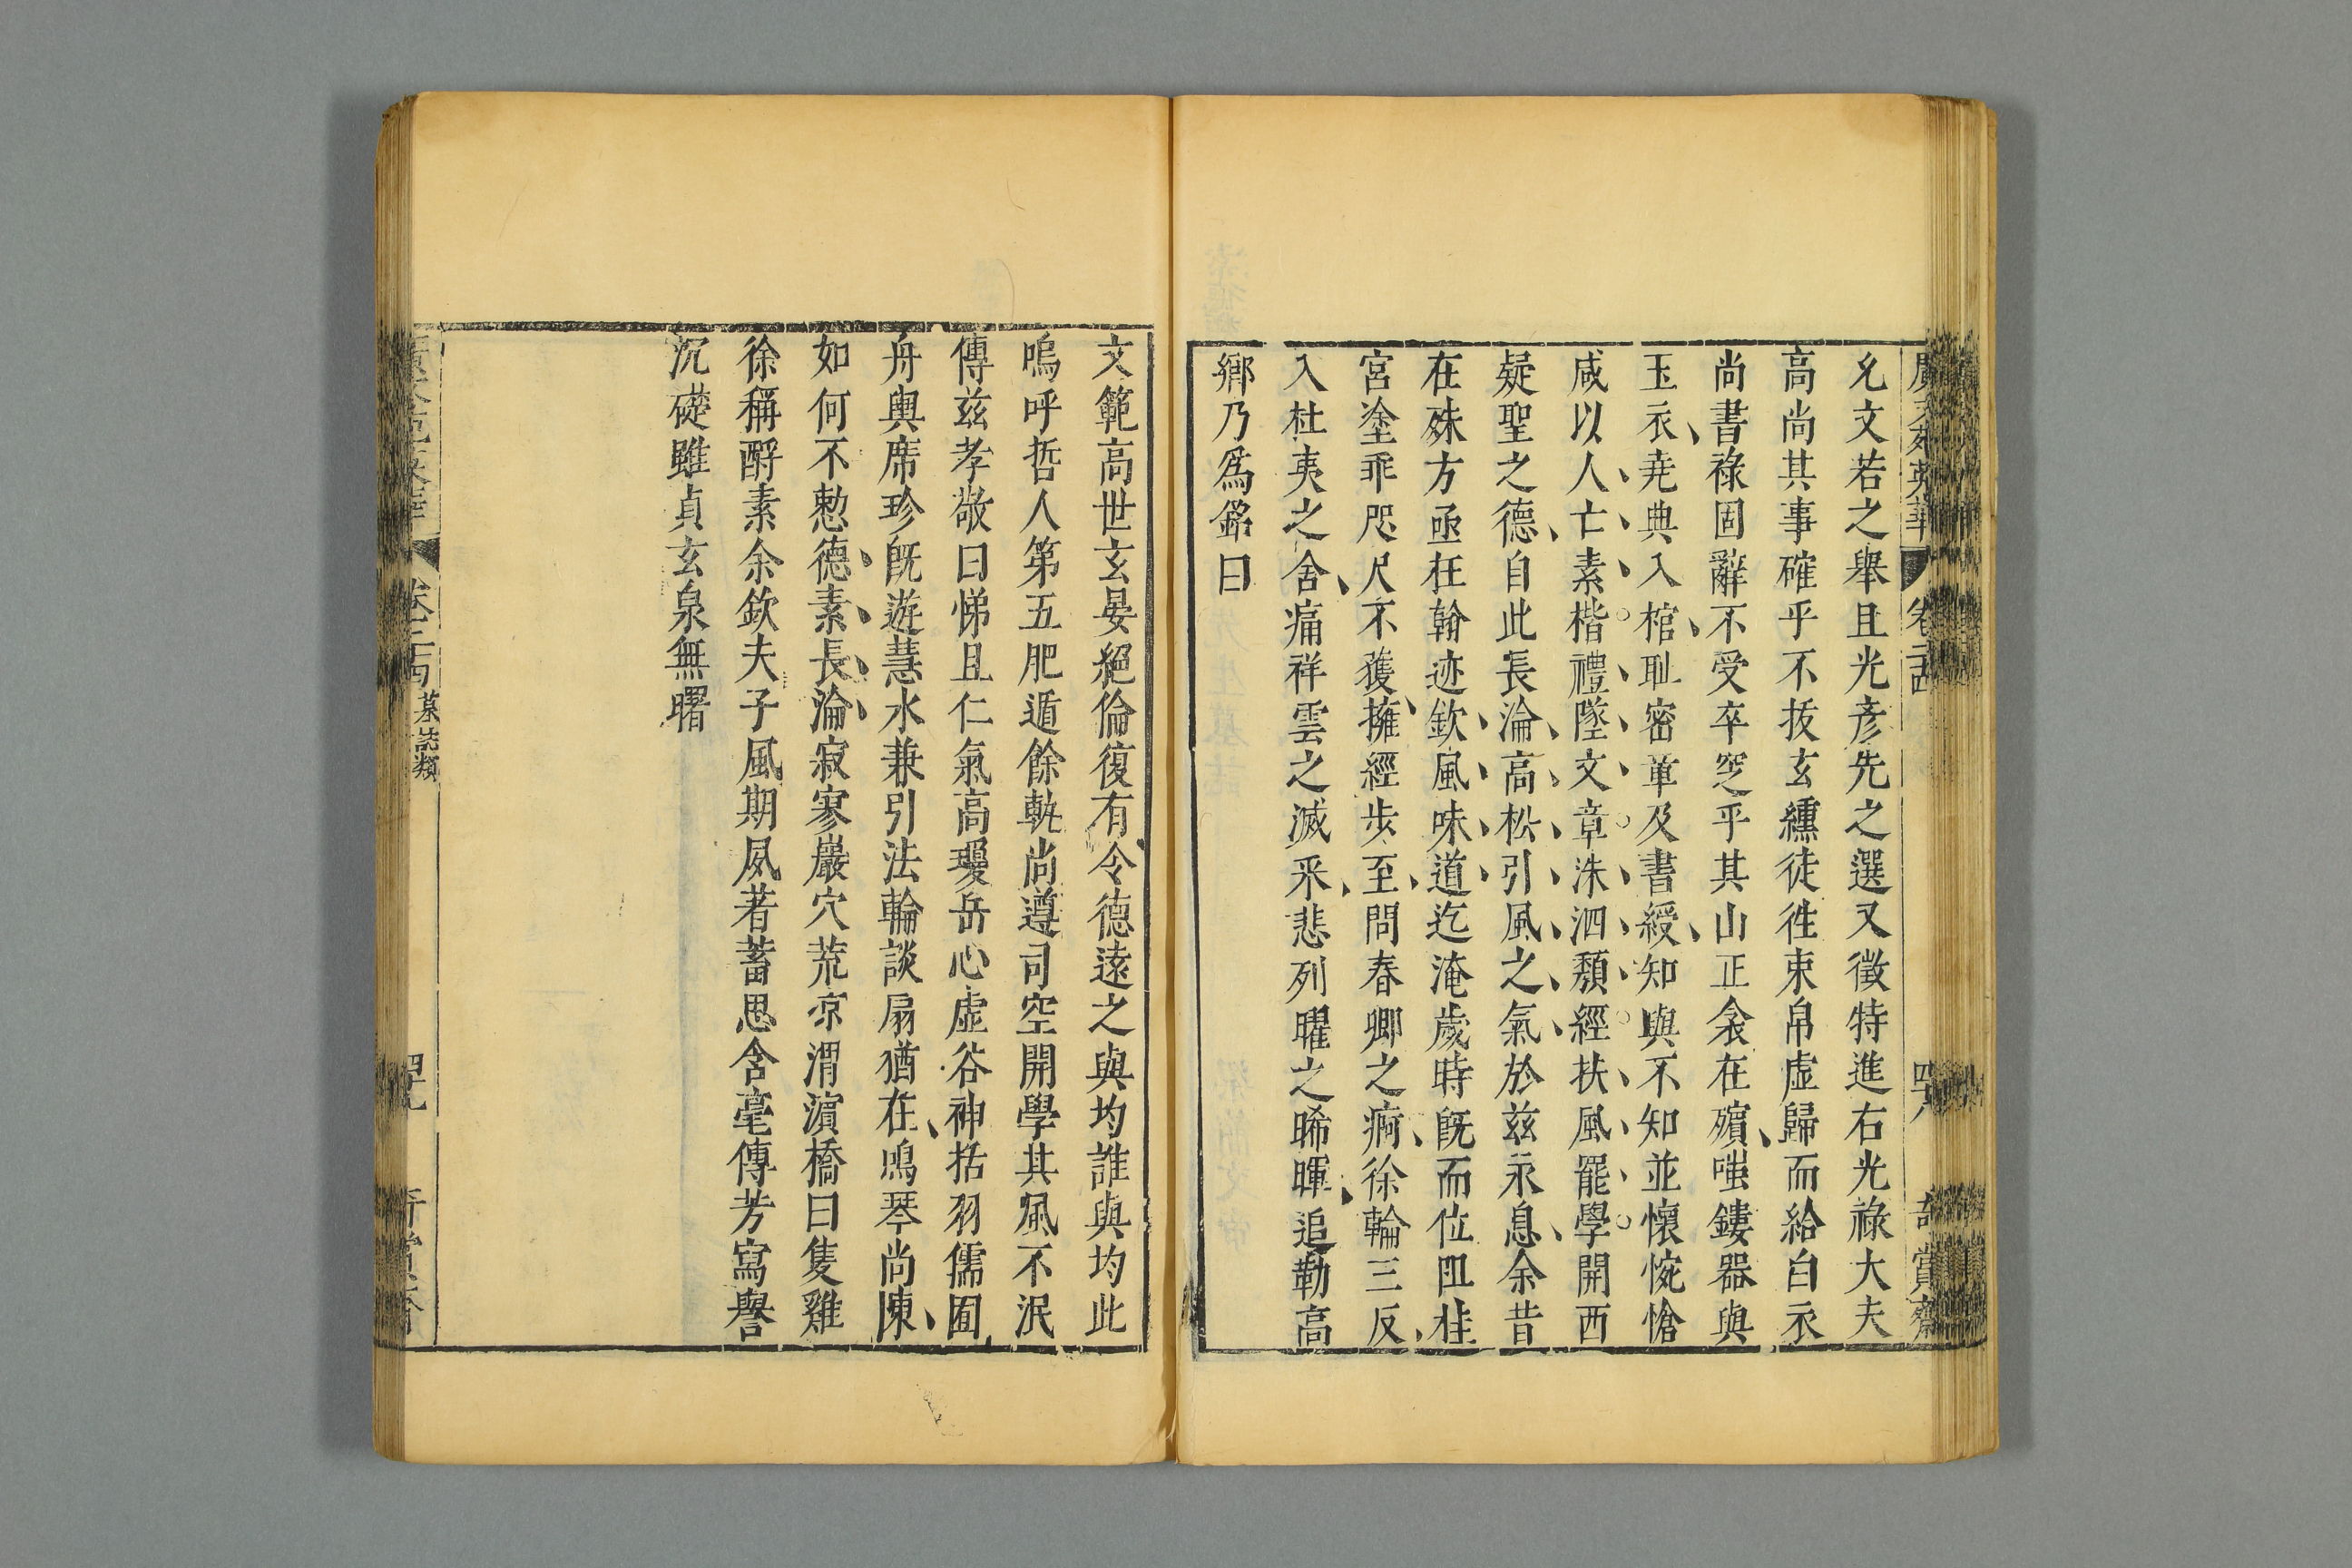 廣文苑英華 卷二十四 四十八 奇賞齋
允文若之舉且光彦先之選又徵特進右光祿大夫
高尚其事確乎不拔玄纁徒徃束帛虛歸而給白衣
尚書祿固辭不受卒窆乎其山正衾在殯嗤鏤器與
玉衣尭典入棺耻密章及書綬知與不知並懷惋愴
咸以人亡素楷禮墜文章洙泗頽經扶風罷學開西
疑聖之德自此長淪高松引風之氣於兹永息余昔
在殊方亟枉翰迹欽風味道迄淹歲時旣而位阻桂
宮塗乖咫尺不獲擁經步至問春卿之痾徐輪三反
入杜夷之舍痛祥雲之滅采悲列曜之晞暉追勒高
鄉乃爲銘曰
文範高世玄晏絕倫復有令德遠之與均誰與均此
嗚呼哲人第五肥遁餘軌尚遵司空開學其風不泯
傳兹孝敬曰悌且仁氣高瓊岳心虛谷神括羽儒囿
舟輿席珍旣遊慧水兼引法輪談扇猶在鳴琴尚陳
如何不憖德素長淪寂寥巖穴荒凉渭濵橋曰隻雞
徐稱酹素余欽夫子風期夙著蓄思含毫傳芳寫譽
沉礎雖貞玄泉無曙
廣文苑英華 卷二十四 墓誌類 四十九 奇賞齋